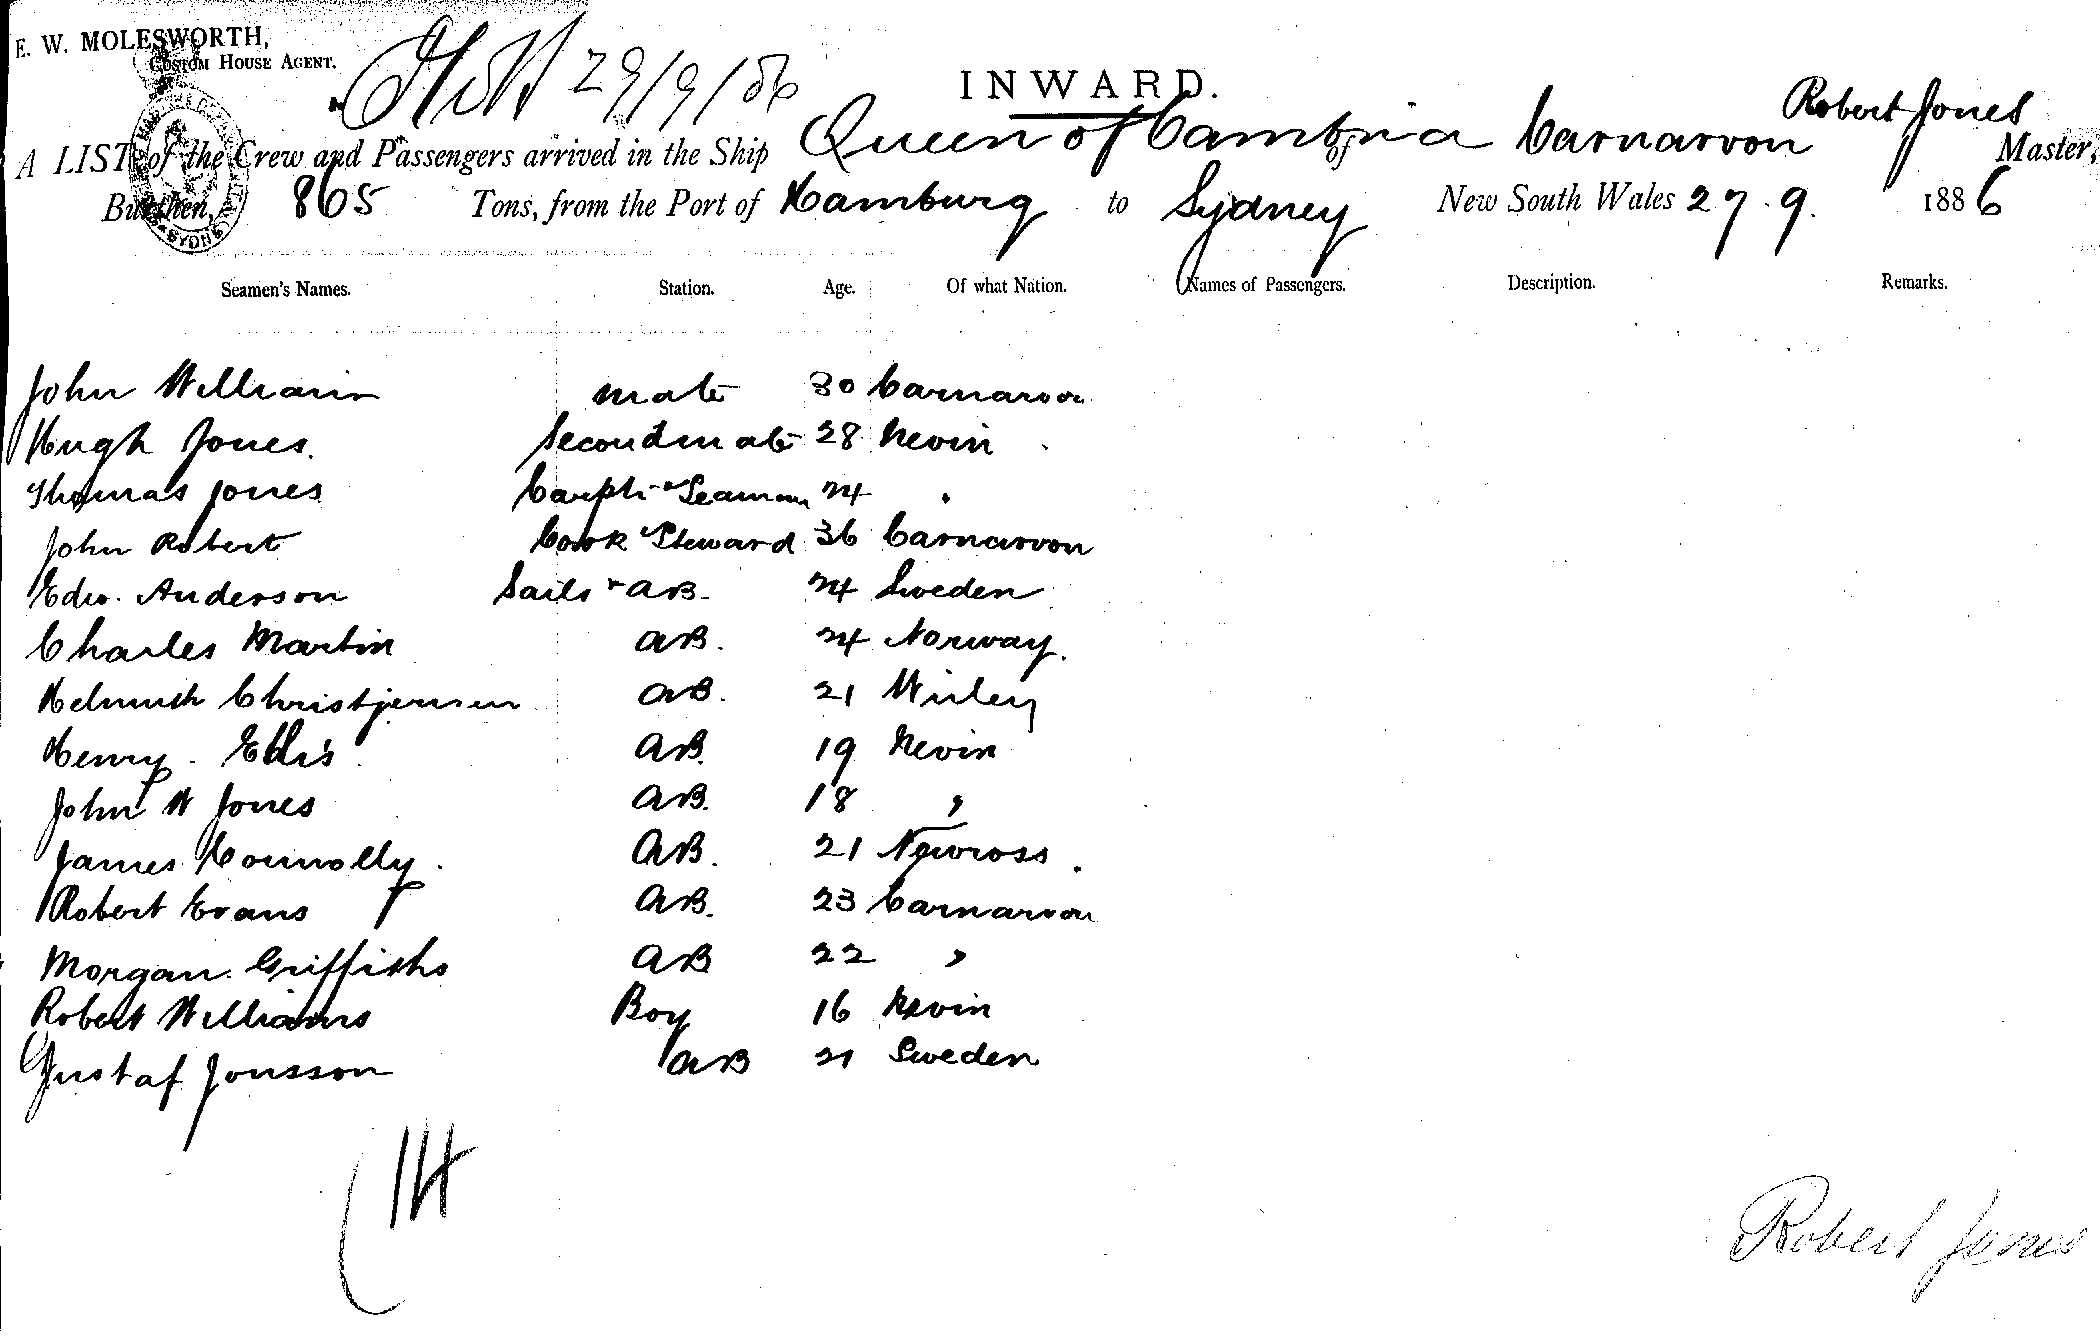 E. W. MOLESWORTH,
CUSTOM HOUSE AGENT.
29/9/86
INWARD.
A LIST of the Crew and Passengers arrived in the Ship Queen of Cambria of Carnarvon Robert Jones Master,
Burthen, 865 Tons, from the Port of Hamburg to Sydney New South Wales 27.9. 1886
Seamen's Names. Station. Age. Of what Nation. Names of Passengers. Description. Remarks.
John William mate 30 Carnarvon
Hugh Jones. Second mate 28 Nevin
Thomas Jones Carptr & Seaman 24 "
John Robert Cook & Steward 36 Carnarvon
Edw. Anderson Sails & AB. 24 Sweden
Charles Martin AB. 24 Norway.
Helmuth Christjensen AB. 21
Henry Ellis AB. 19 Nevin
John W Jones AB. 18 "
James Connolly. AB. 21 Newross.
Robert Evans AB. 23 Carnarvon
Morgan Griffiths AB 22 "
Robert Williams Boy 16 Nevin
Gustaf Jonsson AB 21 Sweden
14
Robert Jones